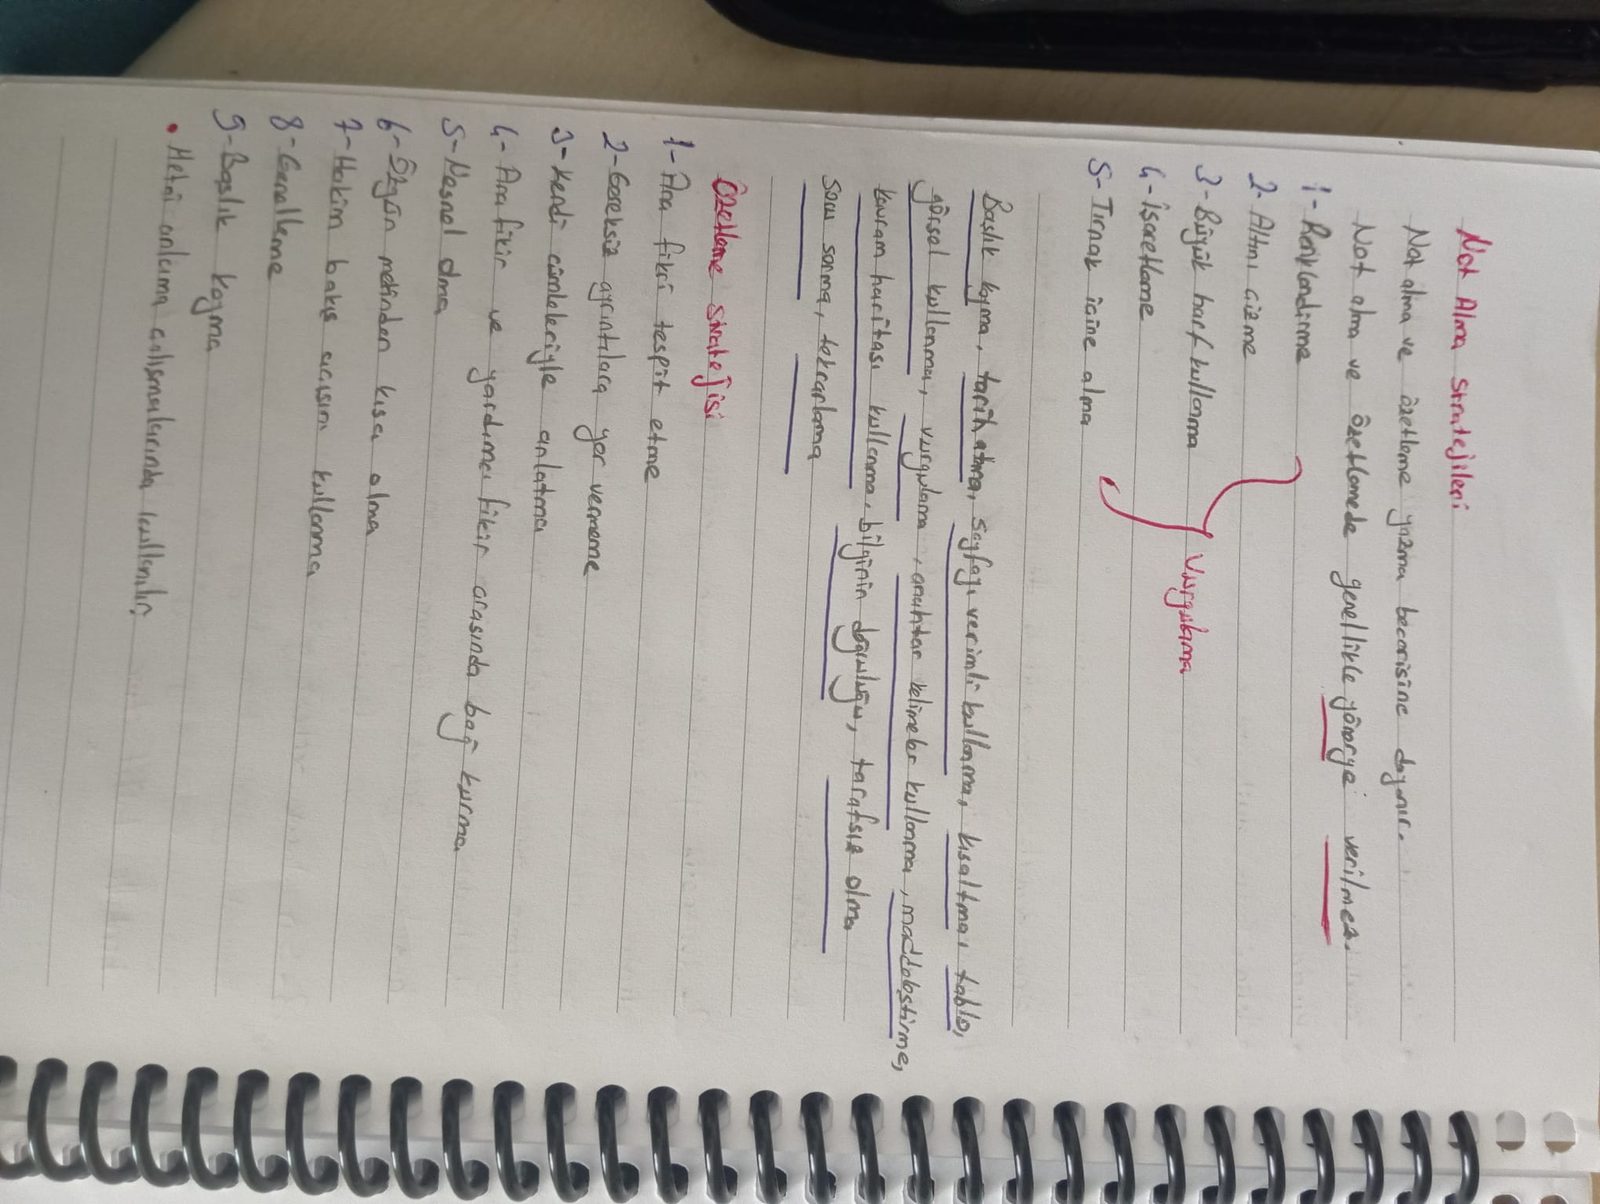 Not Alma Stratejileri
Not alma ve özetleme yazma becerisine dayanır.
Not alma ve özetlemede genellikle yönerge verilmez.
1- Renklendirme
2- Altını çizme
3- Büyük harf kullanma
Vurgulama
4- İşaretleme
5- Tırnak içine alma
Başlık koyma, tarih atma, sayfayı verimli kullanma, kısaltma, tablo,
görsel kullanma, vurgulama, anahtar kelimeler kullanma, maddeleştirme,
kavram haritası kullanma, bilginin doğruluğu, tarafsız olma
soru sorma, tekrarlama
Özetleme stratejisi
1- Ana fikri tespit etme
2- Gereksiz ayrıntılara yer vermeme
3- Kendi cümleleriyle anlatma
4- Ana fikir ve yardımcı fikir arasında bağ kurma
5- Nesnel olma
6- Özgün metinden kısa olma
7- Hakim bakış açısını kullanma
8- Genelleme
9- Başlık koyma
• Metni anlama çalışmalarında kullanılır.